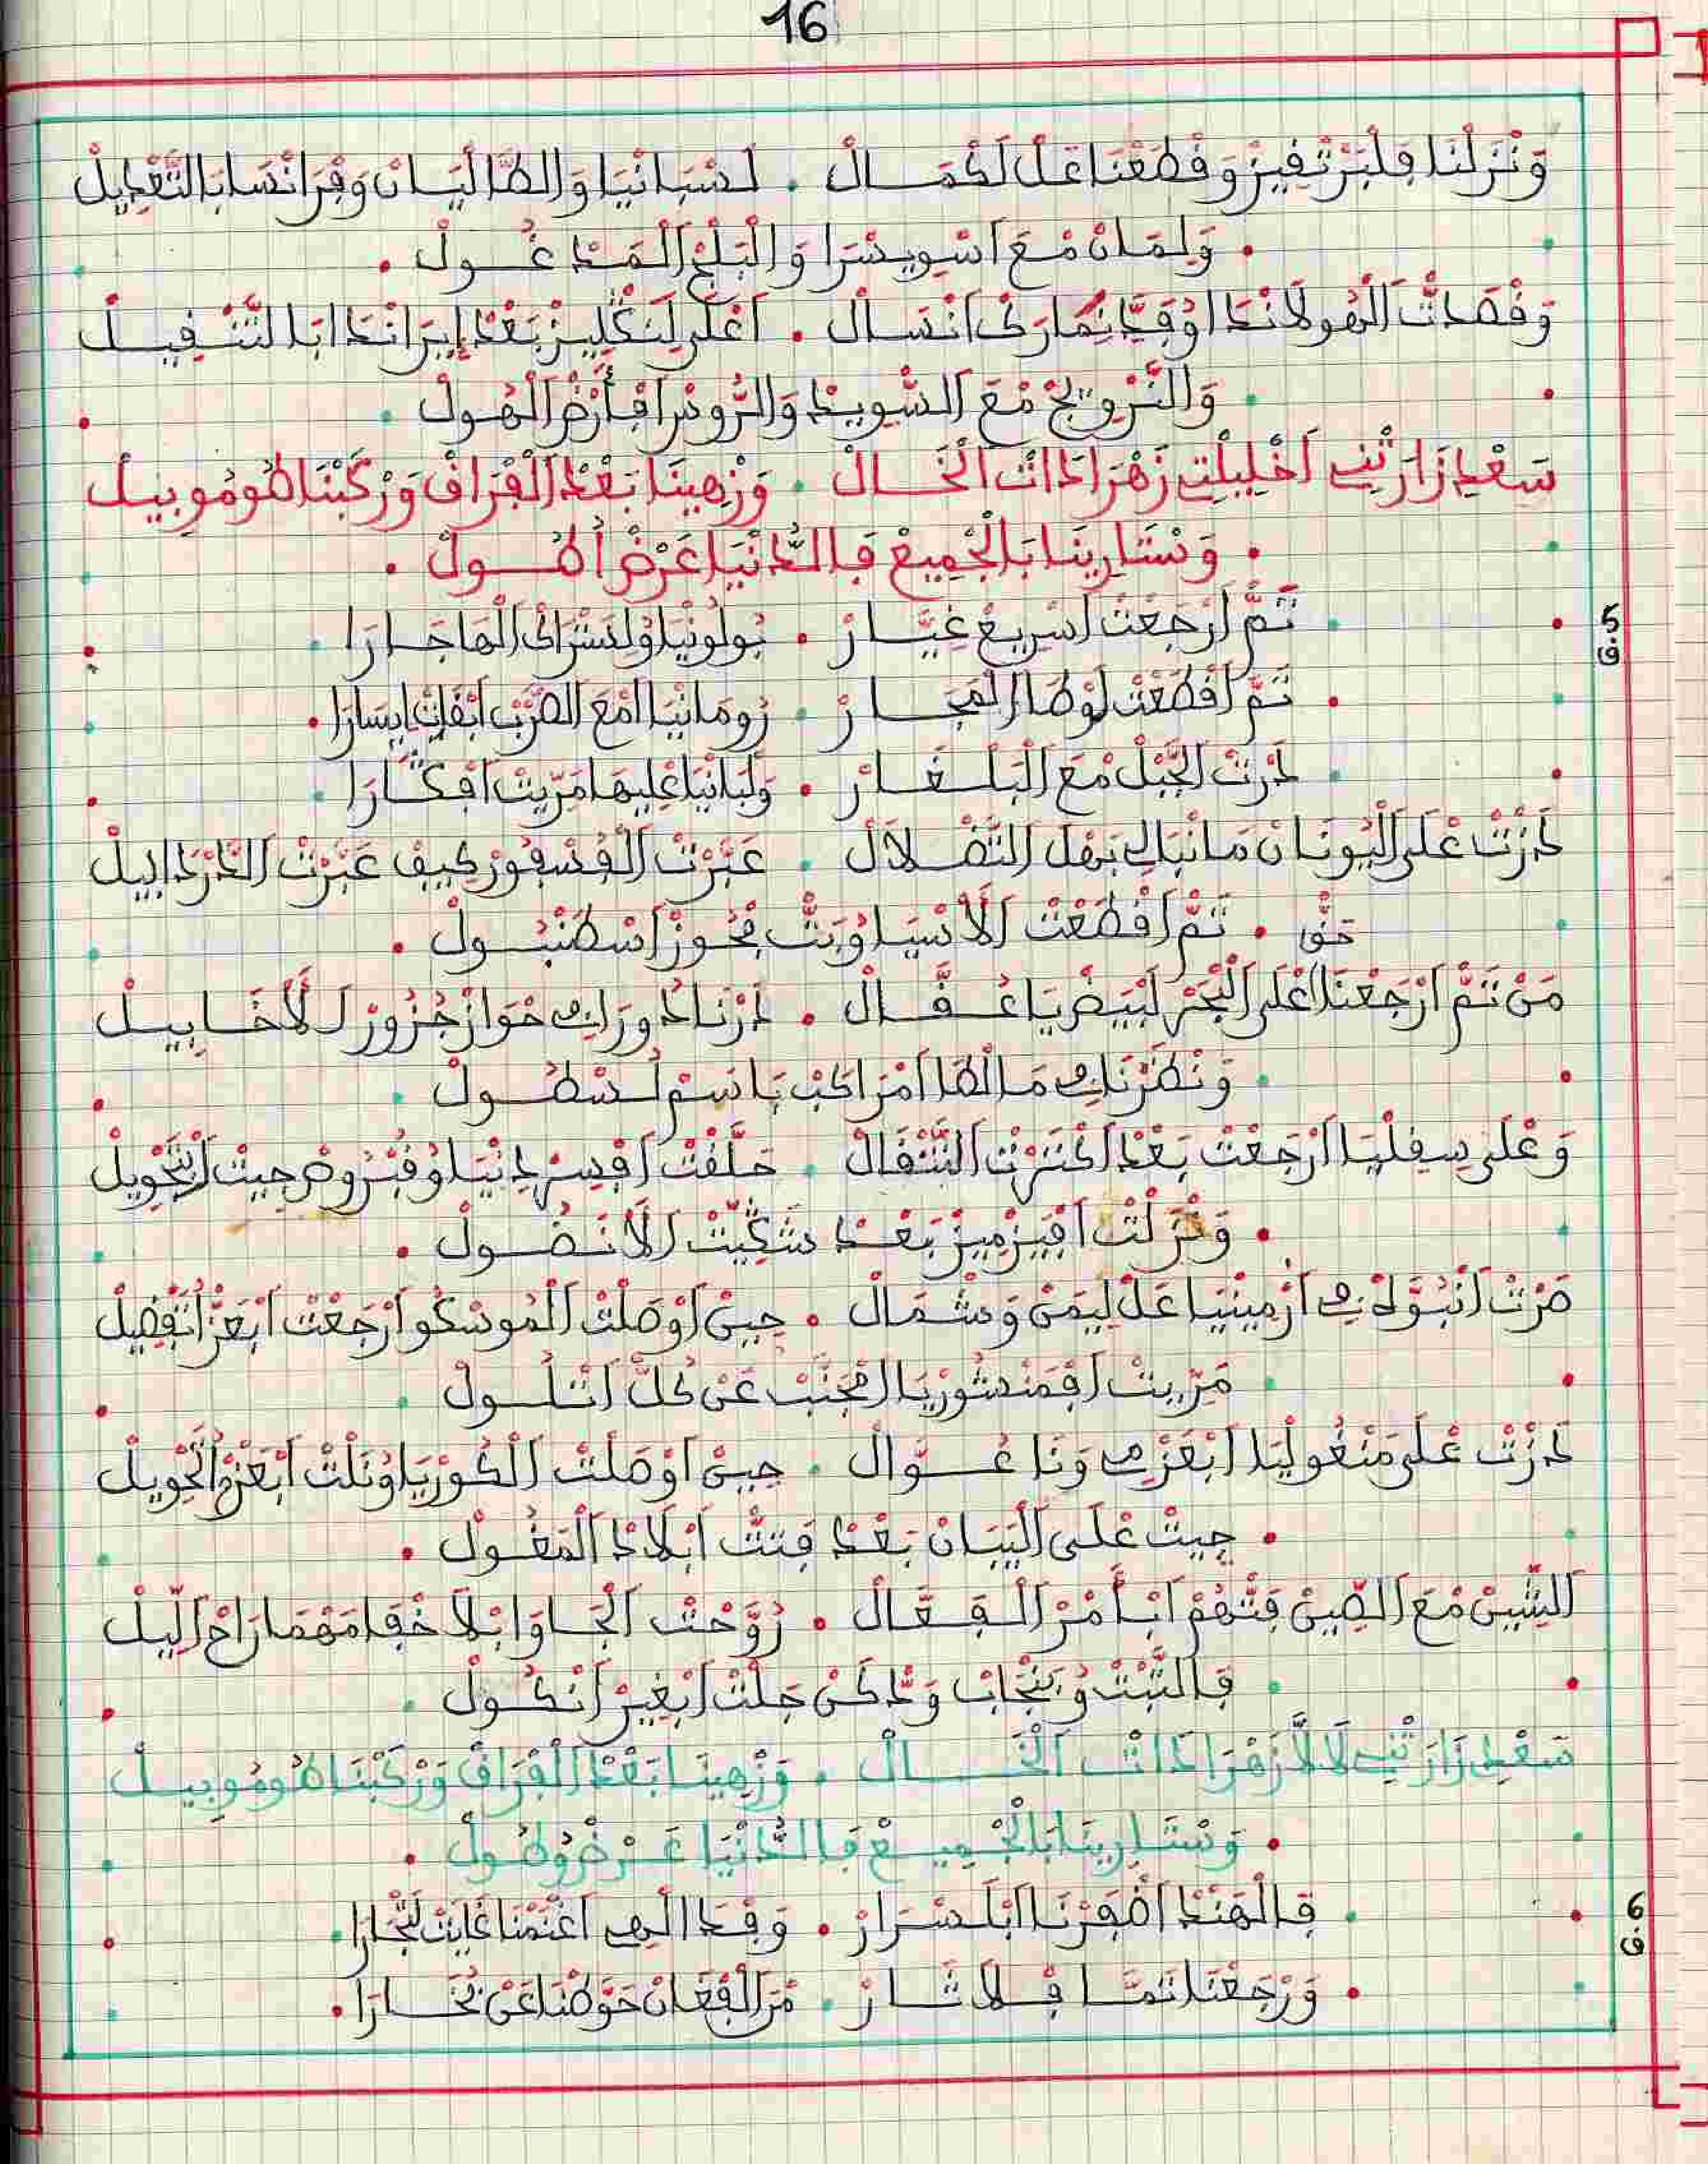 16
وَنْزَلْنَا فِلْبَرْثْفِيزْ وَقْطَعْنَا عَلْ لَكْمَالْ . لَسْبَانْيَا وَالطَّالْيَانْ وَفْرَانْسَا بَالتَّعْدِيلْ
. وَلِمَانْ مْعَ اسْوِيسْرَا وَالْبَلْجْ الْمَدْغُولْ .
وَقْصَدْتْ الْهُولَانْدَا اوُفَدَّنِمَارْكْ انْسَالْ . اعْلَى لَنْكْلِيزْ بَعْدْ إِيرَانْدَا ابَالتَّنْفِيلْ
. وَالنَّرْوِيجْ مْعَ السْوِيدْ وَالرُّوسْ افْأَرْضْ الْهُولْ .
سَعْدِي زَارَتْنِي اخْلِيلْتِي زَهْرَا ذَاتْ الْخَالْ . وَزْهِينَا بَعْدْ الْفْرَاقْ وَرْكَبْنَا طُومُوبِيلْ
. وَسْتَارِينَا بَالْجْمِيعْ فَالدُّنْيَا عَرْضْ أُطُولْ .
5
ق
تَمَّ ارْجَعْتْ اسْرِيعْ غِيَّارْ . بُولُونْيَا وُلِسْتْرَاكْ الْهَاجَارَا
. تَمَّ اقْطَعْتْ لَوْطَارْ الْمَجَارْ . رُومَانْيَا امْعَ الصَّرْبْ ابْقَاتْ ايْسَارَا .
دَرْتْ الْجْبَلْ مْعَ الْبَلْغَارْ . وَلْبَانْيَا عْلِيهَا مَرِّيتْ افْكَّارَا
دَرْتْ عْلَى الْيُونَانْ مَا نْبَالِي بَهْلْ التَّضْلَالْ . عَبَّرْتْ الْفُسْفُورْ كِيفْ عَبَّرْتْ الدَّرْدَابِيلْ
حَتَّى . تَمَّ اقْطَعْتْ الَاسْيَا وُبَتّْ فْحُوزْ اسْطَنْبُولْ .
مَنْ تَمَّ ارْجَعْنَا اعْلَى الْبْحَرْ لَبْيَضْ يَا عُقَّالْ . دَرْنَا دُورَانْ حْوَازْ جْزُورْ لَاخَابِيلْ
وَنْظَرْنَا فِي مَالْطَا امْرَاكَبْ بَاسْمْ لُسْطُولْ
وَعْلَى سِفِلْيَا ارْجَعْتْ بَعْدْ اكْتَرْتْ التَّنْقَالْ . حَلَّقْتْ افْسِرْدِنْيَا وُقُبْرُوصْ جِيتْ ابْتَحْوِيلْ
. وَنْزَلْتْ افِيزْمِيزْ بَعْدْ شَكِّيتْ الَانَضُولْ .
صَرْتْ انْبُوَّدْ فِي ارْمِينْيَا عَلْ لِيمَنْ وَشْمَالْ . حِينْ اوْصَلْتْ الْمُوسْكُو ارْجَعْتْ ابْعَزّْ اتْفْضِيلْ
مَرِّيتْ افْمَنْشُورْيَا امْجَنَّبْ عَنْ كُلّْ اتْلُولْ
دَرْتْ عْلَى مَنْغُولْيَا ابْعَزْمِي وَنَا عُوَّالْ . حِينْ اوْصَلْتْ الْكُورْيَا وُنَلْتْ ابْعَزْمْ الْحْوِيلْ
. جِيتْ عْلَى الْيَبَانْ بَعْدْ فَتّْ ابْلَادْ الْمَغُولْ .
الشِّينْ مْعَ الصِّينْ فَتّْهُمْ ابْأَمْرْ الْفَعَّالْ . رُوَّحْتْ الْجَاوَا ابْلَا خْفَا مَهْمَا رَاحْ اللِّيلْ
فَالتِّبْتْ وُبَنْجَابْ وَدَّكَنْ جَلْتْ ابْغِيرْ انْكُولْ
سَعْدِي زَارَتْنِي لَالَّا زَهْرَا ذَاتْ الْخَالْ . وَزْهِينَا ابَعْدْ الْفْرَاقْ وَرْكَبْنَا طُومُوبِيلْ
. وَسْتَارِينَا بَالْجْمِيعْ فَالدُّنْيَا عَرْضْ وُطُولْ .
6
ق
فَالْهَنْدْ اضْفَرْنَا ابْلَسْرَارْ . وَفْمَدْرَالْهِي اغْنَمْنَا غَايَتْ لَتْجَارَا
. وَرْجَعْنَا تَمَّا فْلَاثَارْ . مْنْ الْفْغَانْ حَوَّطْنَا عَنْ بُخَارَا .